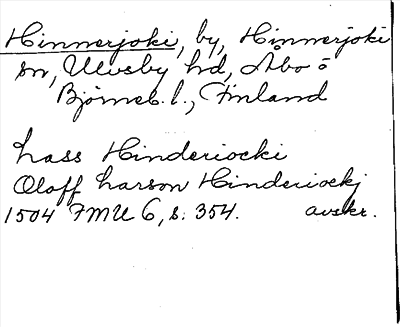 Hinnerjoki, by, Hinnerjoki
sn, Ulvsby hd, Åbo o
Björneb. l., Finland
Lass Hinderiocki
Oloff Larson Hinderiockj
1504 FMU 6, s. 354. avskr.